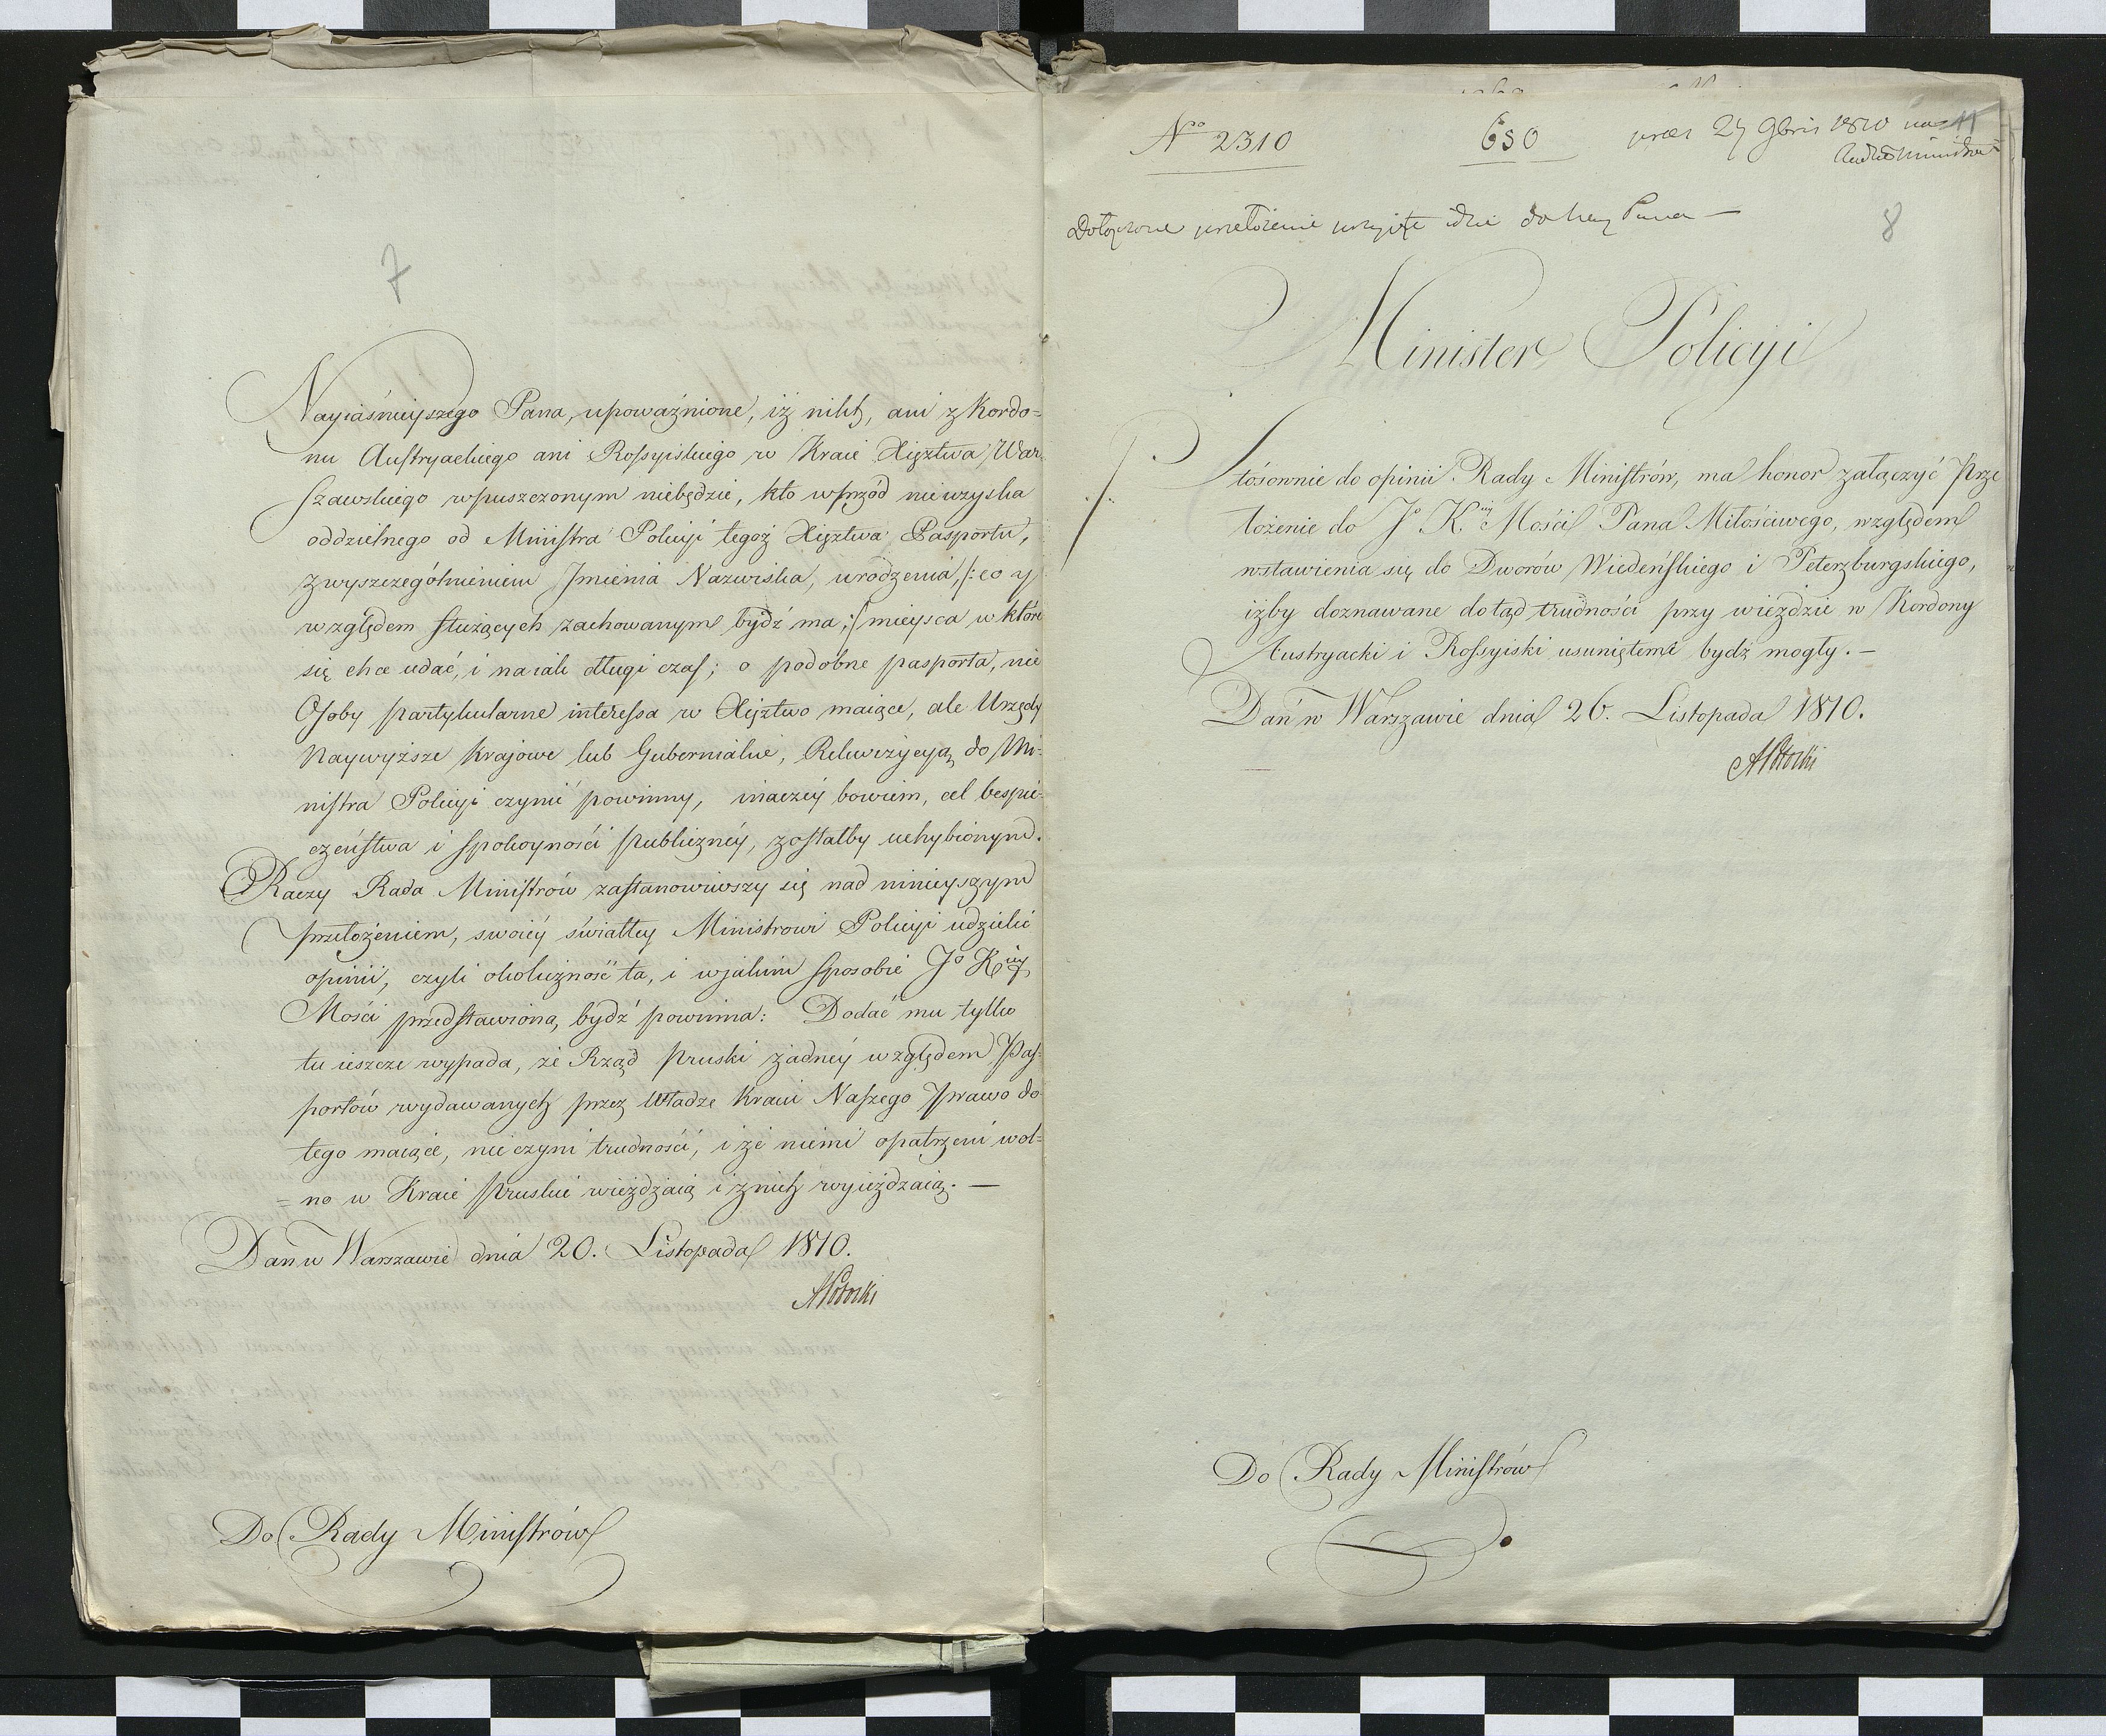 7
Nayiaśnieyszego Pana, upoważnione, iż nikt, ani z Kordo=
nu Austryackiego ani Rossyiskiego w Kraie Xięztwa War
szawskiego wpuszczonym niebędzie, kto wprzód nieuzyska
oddzielnego od Ministra Policyi tegoż Xięztwa Pasportu,
z wyszczególnieniem Jmienia Nazwiska, urodzenia, /: co y
względem służących zachowanym bydź ma :/ mieysca w które
się chce udać, i na iak długi czas; o podobne pasporta, nie
Osoby partykularne interessa w Xięztwo maiące, ale Urzędy
Naywyższe Krajowe lub Gubernialne, Rekwizycyą do Mi=
nistra Policyi czynić powinny, inaczéy bowiem, cel bespie=
czeństwa i spokoyności publicznéy, zostałby uchybionym.
Raczy Rada Ministrów zastanowiwszy się nad ninieyszym
przełożeniem, swoiéy światłey Ministrowi Policyi udzielić
opinii, czyli okoliczność ta, i w jakim sposobie Jo Kiéy
Mości przedstawioną bydź powinna: Dodać mu tylko
tu ieszcze wypada, że Rząd Pruski żadnéy względem Pas=
portów wydawanych przez Władze Kraiu Naszego prawo do
tego maiące, nie czyni trudności, i że niemi opatrzeni wol=
=no w Kraie Pruskie wieżdżaią i z nich wyieżdzaią. —
Dan w Warszawie dnia 20. Listopada 1810.
APotocki
Do Rady Ministrów
No 2310
650
praes 27 9bris 1810 na
11
Radzie Ministrów
Dołączone przełożenie przyięte idzie do Nay Pana —
8
Minister Policyi
Stósownie do opinii Rady Ministrów, ma honor załączyć Prze
łożenie do Jo K.iéy Mości Pana Miłościwego, względem
wstawienia się do Dworów Wiedeńskiego i Peterzburgskiego,
iżby doznawane dotąd trudności przy wieździe w Kordony
Austryacki i Rossyiski usuniętemi bydź mogły. —
Dań w Warszawie dnia 26. Listopada 1810.
APotocki
Do Rady Ministrów